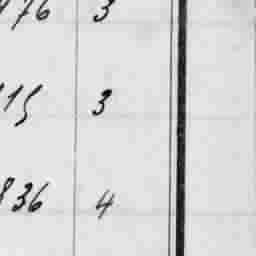 76 3
15 3
836 4